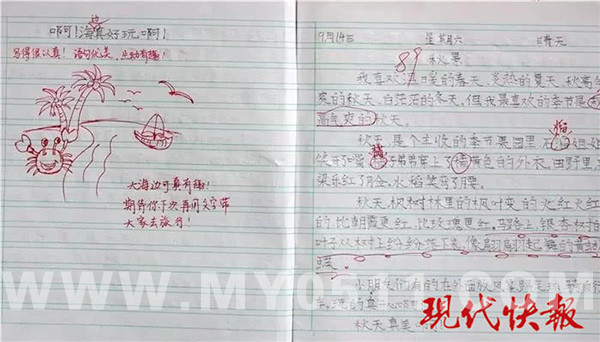 啊！海真好玩啊！
边
写得很认真！语句优美、生动有趣！
大海边可真有趣！
期待你下次再用文字带
大家去旅行！
9月14日 星期六 晴天
89 秋景
我喜欢 暖的春天、炎热的夏天、秋高
爽的秋天、白茫茫的冬天，但我最喜欢的季节是
高气爽的秋天。
秋天，是个丰收的季节果园里，石 姐姐
榴
笑开了嘴 子弟弟穿上了 黄色的外衣，田野里，
梁乐红了脸，水稻笑弯了腰。
秋天，枫树林里的枫叶变的火红火红
的，比朝霞更红，比玫瑰更红。马路上，银杏树
叶子从树上纷纷掉下来，像翩翩起舞的黄
小朋友们有的在外面放风筝
秋天真是
WWW.MY0511.COM
现代快报